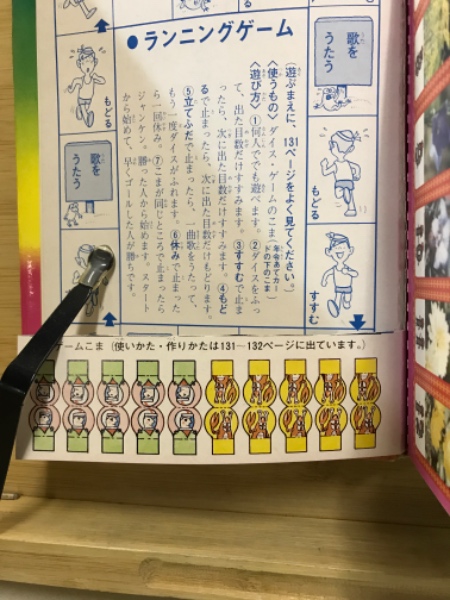 ●ランニングゲーム
(遊ぶまえに、131ページをよく見てください。)
〈使うもの〉ダイス・ゲームのこま(年令あてカードの下のこま)
〈遊び方〉①何人でも遊べます。②ダイスをふっ
て、出た目数だけすすみます。③すすむで止ま
ったら、次に出た目数だけすすみます。④もど
るで止まったら、次に出た目数だけもどります。
⑤立てふだで止まったら、一曲歌をうたって、
もう一度ダイスがふれます。⑥休みで止まった
ら一回休み。⑦こまが同じところで止まったら
ジャンケン。勝った人から始めます。スタート
から始めて、早くゴールした人が勝ちです。
歌を
うたう
もどる
すすむ
もどる
歌を
うたう
ゲームこま(使いかた・作りかたは131〜132ページに出ています。)